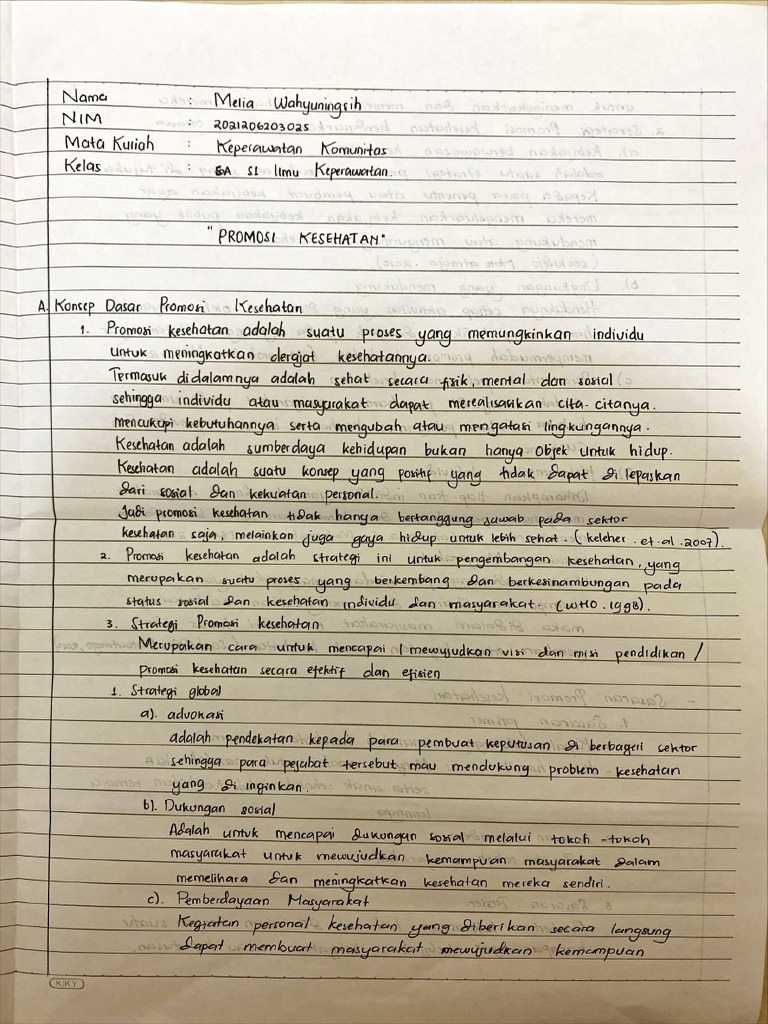 Nama : Melia Wahyuningsih
NIM : 2021206203025
Mata Kuliah : Keperawatan Komunitas
Kelas : 5A S1 Ilmu Keperawatan.
"PROMOSI KESEHATAN"
A. Konsep Dasar Promosi Kesehatan
1. Promosi kesehatan adalah suatu proses yang memungkinkan individu
untuk meningkatkan derajat kesehatannya.
Termasuk didalamnya adalah sehat secara fisik, mental dan sosial
sehingga individu atau masyarakat dapat merealisasikan cita-citanya.
mencukupi kebutuhannya serta mengubah atau mengatasi lingkungannya.
Kesehatan adalah sumberdaya kehidupan bukan hanya objek untuk hidup.
Kesehatan adalah suatu konsep yang positif yang tidak dapat di lepaskan
dari sosial dan kekuatan personal.
Jadi promosi kesehatan tidak hanya bertanggung jawab pada sektor
kesehatan saja, melainkan juga gaya hidup untuk lebih sehat. (keleher.et.al.2007).
2. Promosi kesehatan adalah strategi ini untuk pengembangan kesehatan, yang
merupakan suatu proses yang berkembang dan berkesinambungan pada
status sosial dan kesehatan individu dan masyarakat. (WHO.1998).
3. Strategi Promosi kesehatan
Merupakan cara untuk mencapai / mewujudkan visi dan misi pendidikan /
promosi kesehatan secara efektif dan efisien
1. Strategi global
a). advokasi
adalah pendekatan kepada para pembuat keputusan di berbagai sektor
sehingga para pejabat tersebut mau mendukung problem kesehatan
yang di inginkan.
b). Dukungan sosial
Adalah untuk mencapai dukungan sosial melalui tokoh-tokoh
masyarakat untuk mewujudkan kemampuan masyarakat dalam
memelihara dan meningkatkan kesehatan mereka sendiri.
c). Pemberdayaan Masyarakat
Kegiatan personal kesehatan yang diberikan secara langsung
dapat membuat masyarakat mewujudkan kemampuan
KIKY